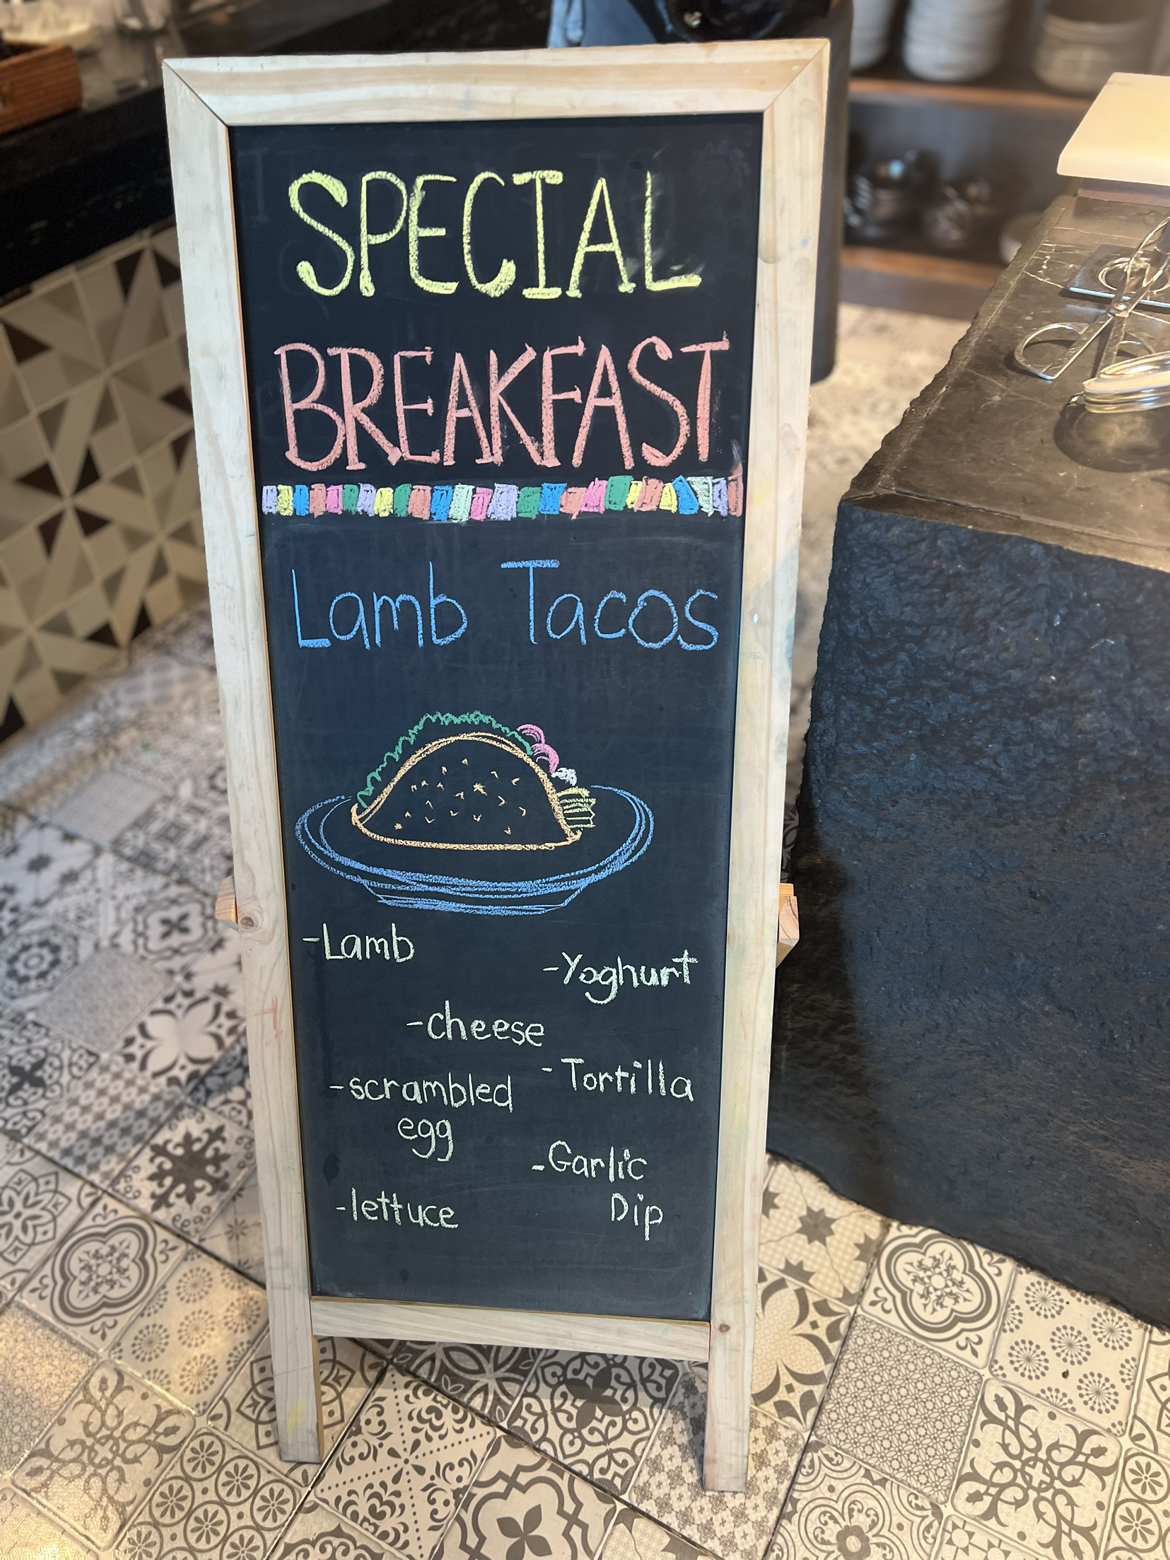 SPECIAL
BREAKFAST
Lamb Tacos
-Lamb
-Yoghurt
-cheese
-Tortilla
-scrambled
egg
-Garlic
Dip
-lettuce